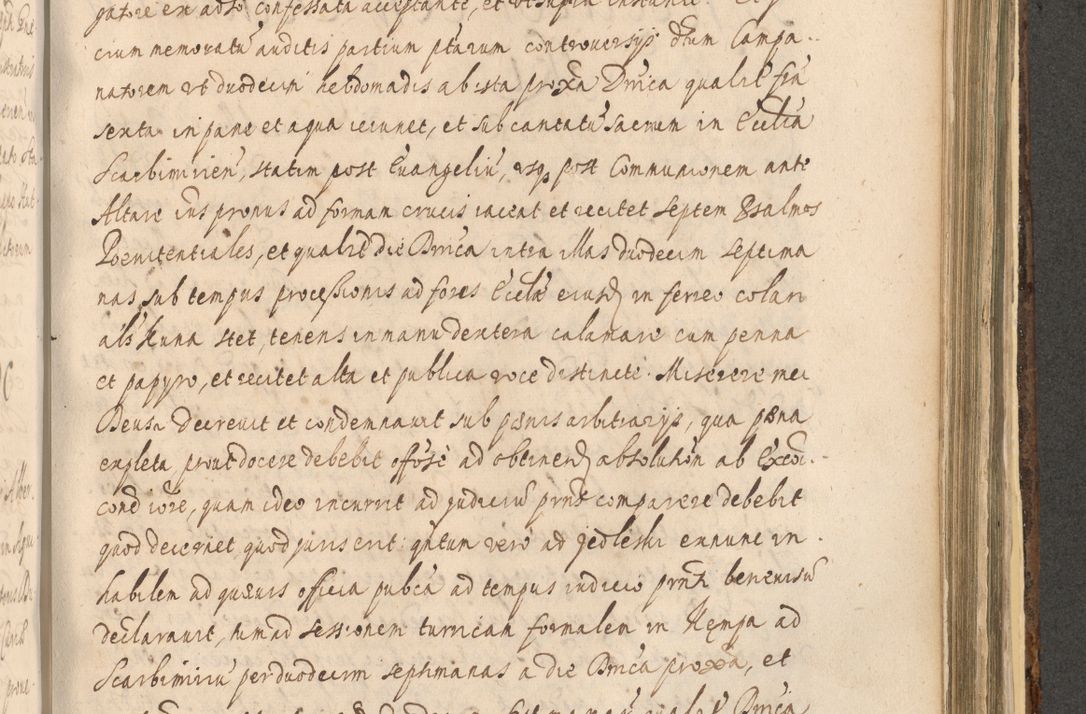 gatore ex adto confessata acceptante, et ut supra instante
cium memoratū auditis partium ptarum controversijs Dtum Campa-
natorem ut duodecim hebdomadis ab ista proxa Dnica qualibt fria
sexta in pane et aqua ieiunet, et sub cantatū sacrum in Ecclia
Scarbimirien, statim post Evangeliū, usq post Communionem ante
Altare ius pronus ad formam crucis iaceat et recitet septem Psalmos
Poenitentiales, et qualibt die Dnica intra illas duodecim septima
nas sub tempus processionis ad fores Ecclae eiusd in ferreo colari
als Kuna stet, tenens in manu dextera calamare cum penna
et papyro, et recitet alta et publica voce distincte. Miserere mei
Deus. decrevit et condemnavit sub poenis arbitrarijs, qua poena
expleta prout docere debebit offose ad obtinend absolution ab Excoi-
cone iore, quam ideo incurrit ad judiciū prns comparere debebit
quod decernet, quod juris erit. qntum vero ad Jedleski exnunc in-
habilem ad quævis officia pubca ad tempus iudicio prnti benevisū
declaravit, tum ad sessionem turricam formalem in Kempa ad
Scarbimiriū per duodecim septimanas a die Dnica proxa, et